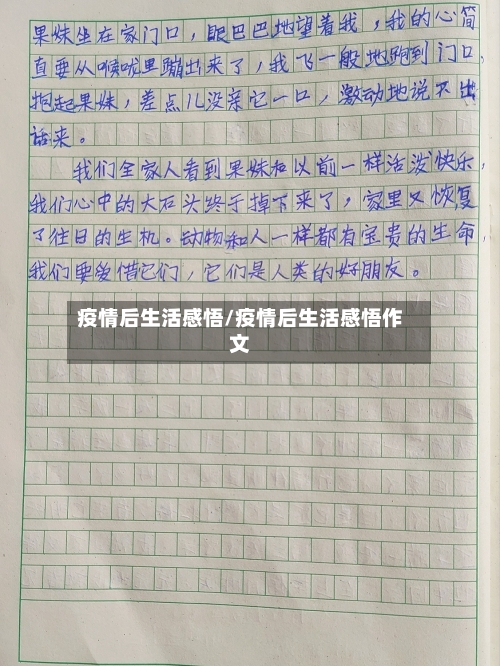 果妹坐在家门口，眼巴巴地望着我，我的心简
直要从喉咙里蹦出来了，我飞一般地跑到门口，
抱起果妹，差点儿没亲它一口，激动地说不出
话来。
我们全家人看到果妹和以前一样活泼快乐，
我们心中的大石头终于掉下来了，家里又恢复
了往日的生机。动物和人一样都有宝贵的生命，
我们要爱惜它们，它们是人类的好朋友。
疫情后生活感悟/疫情后生活感悟作
文